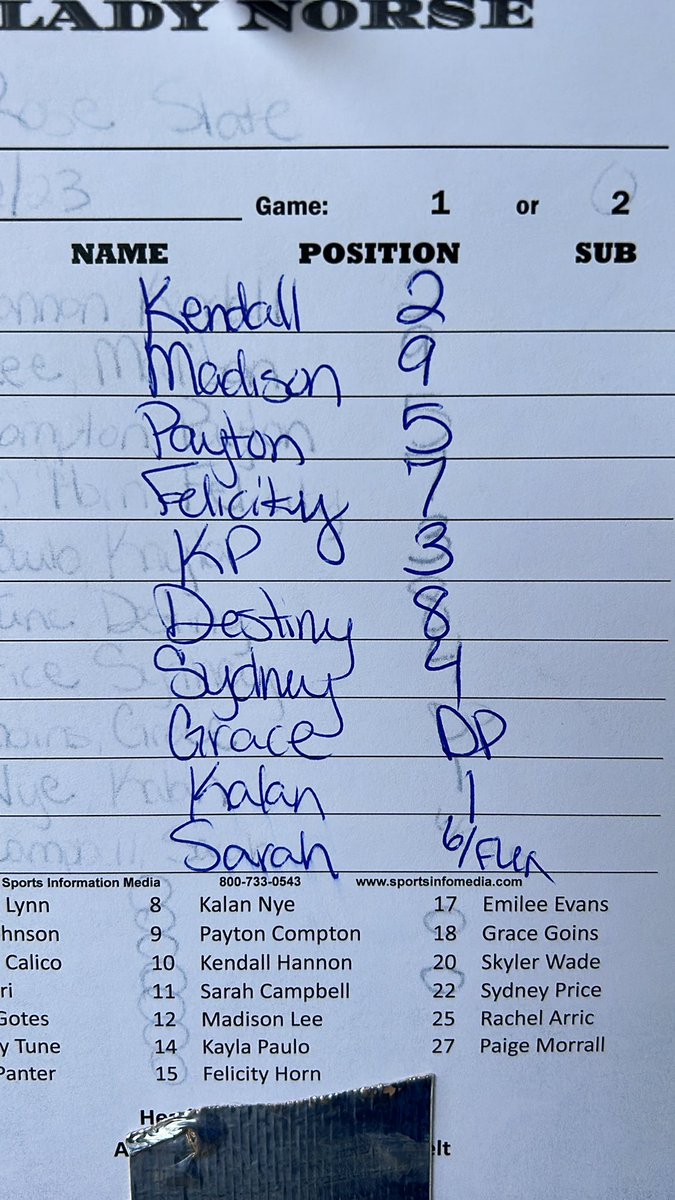 LADY NORSE
Rose State
/03
Game: 1 or 2
NAME POSITION SUB
Kendall 2
Madison 9
Payton 5
Felicity 7
KP 3
Destiny 8
Sydney 4
Grace DP
Kalan 1
Sarah 6/FLEX
Sports Information Media 800-733-0543 www.sportsinfomedia.com
Lynn 8 Kalan Nye 17 Emilee Evans
hnson 9 Payton Compton 18 Grace Goins
Calico 10 Kendall Hannon 20 Skyler Wade
ri 11 Sarah Campbell 22 Sydney Price
Gotes 12 Madison Lee 25 Rachel Arric
y Tune 14 Kayla Paulo 27 Paige Morrall
Panter 15 Felicity Horn
He
A elt